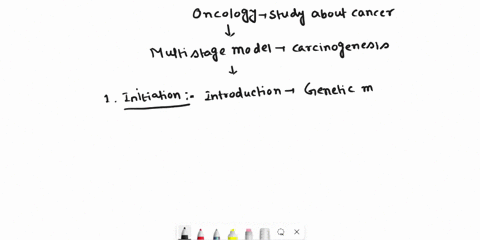 Oncology → study about cancer
↓
Multistage model → carcinogenesis
↓
1. Initiation:- Introduction → Genetic m